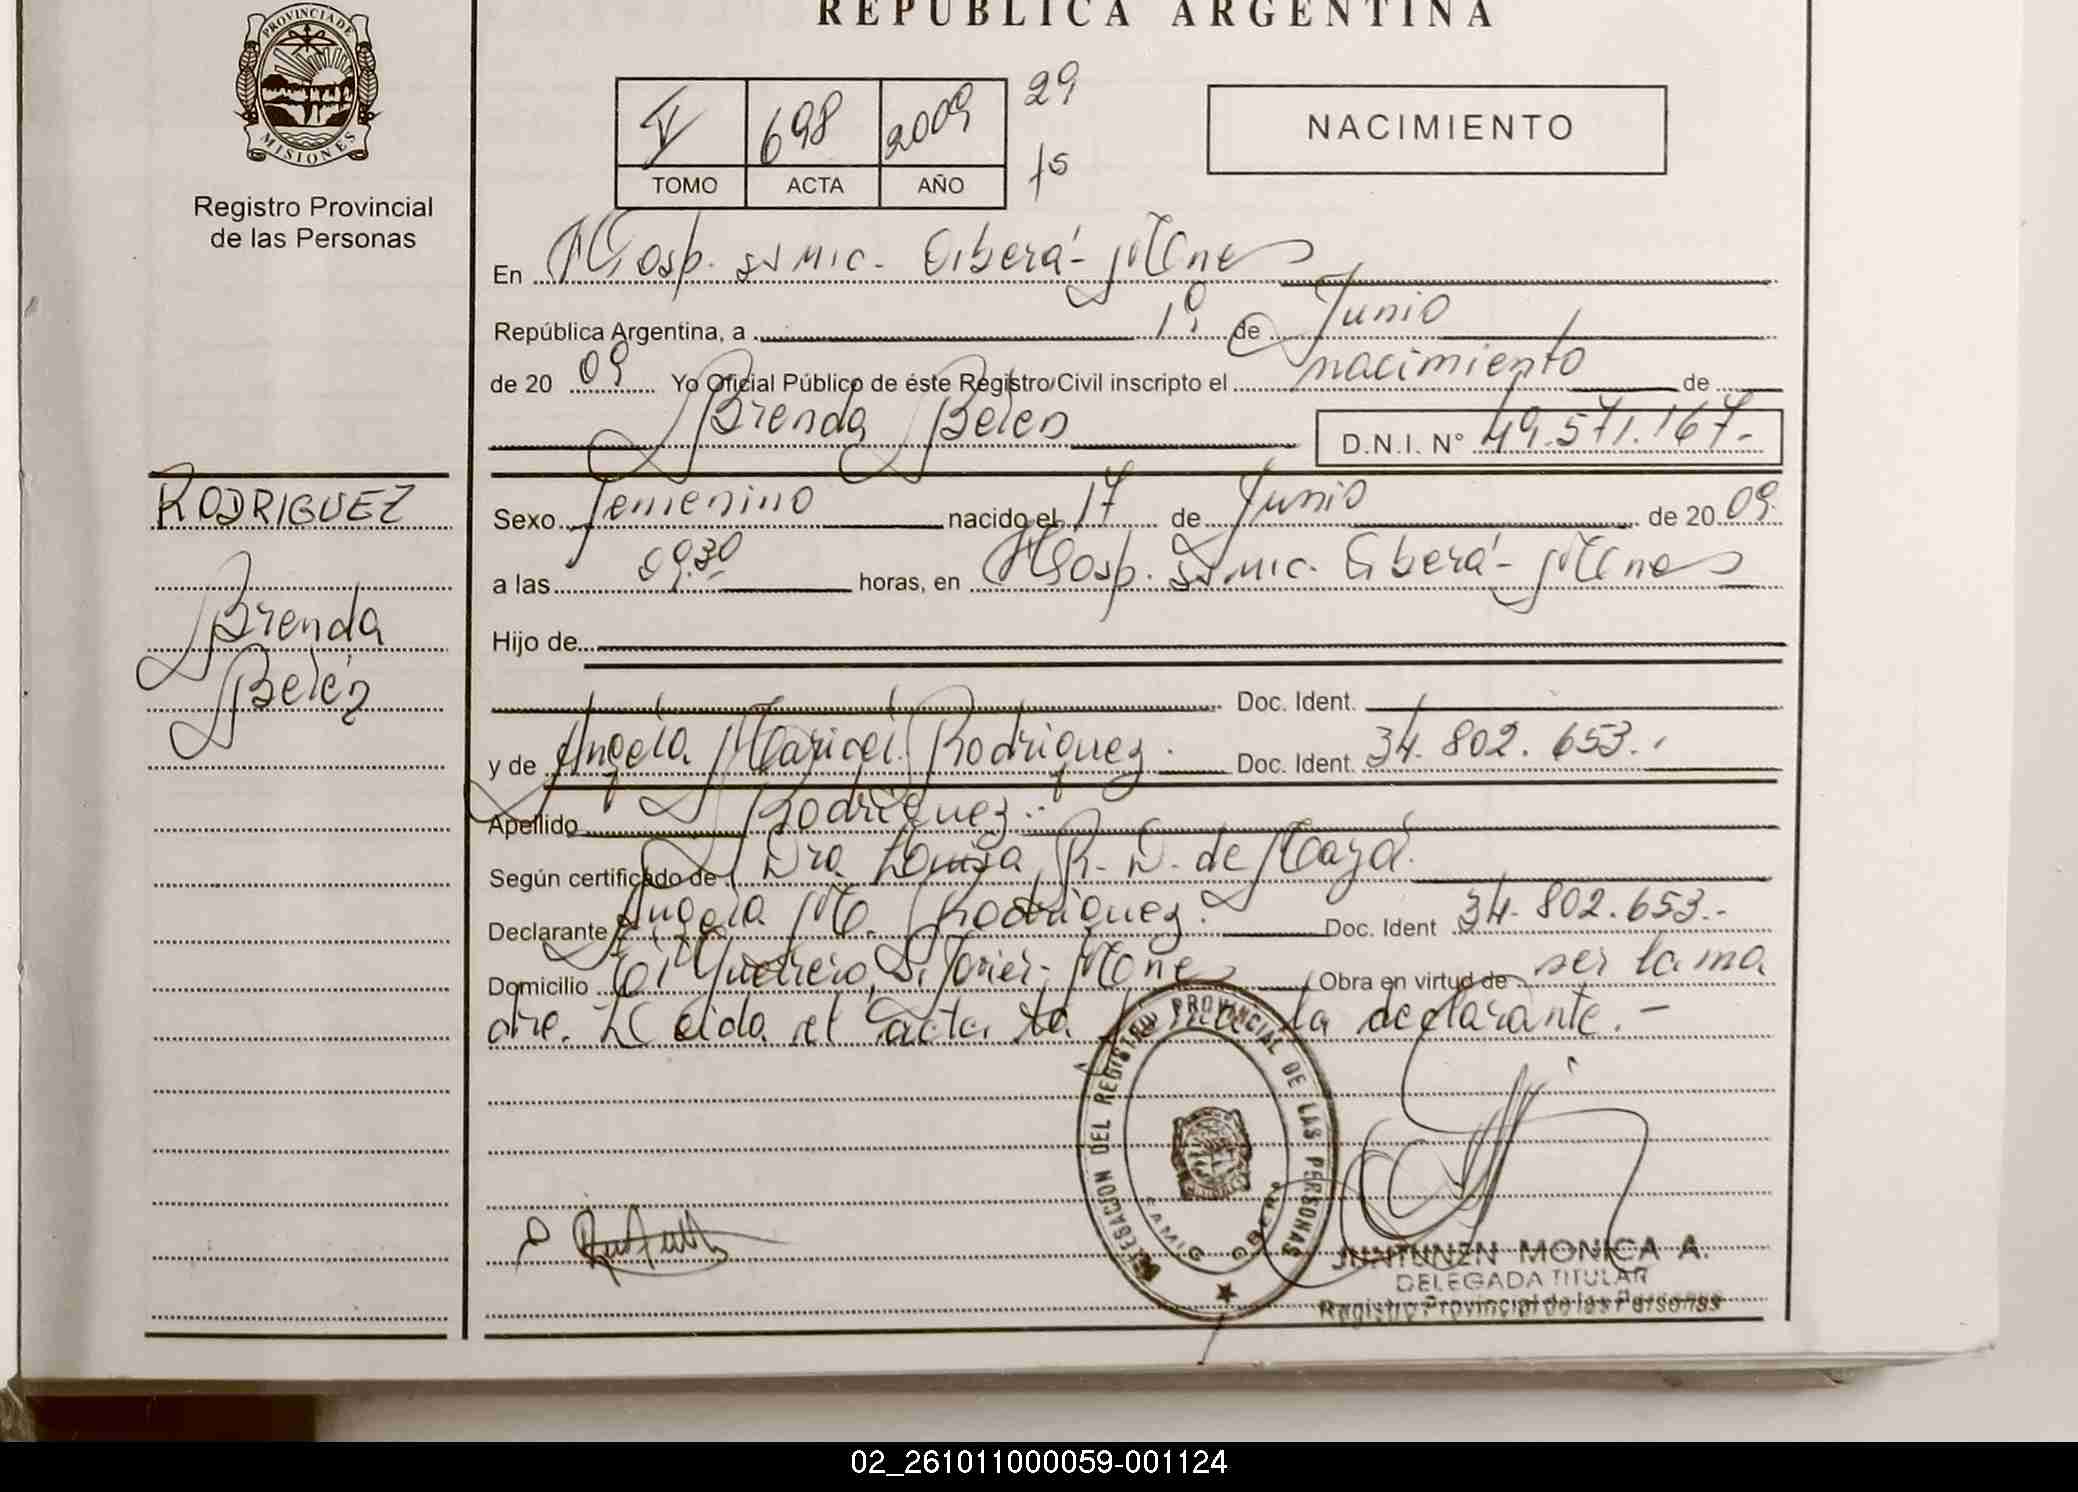 REPUBLICA ARGENTINA
PROVINCIA DE
MISIONES
Registro Provincial
de las Personas
V 698 2009 29
TOMO ACTA AÑO
NACIMIENTO
En Hosp. Oberá - Mnes
República Argentina, a 19 de Junio
de 20 09 Yo Oficial Público de éste Registro Civil inscripto el nacimiento de
Brenda Belen D.N.I. N° 49.571.167-
RODRIGUEZ
Brenda
Belén
Sexo femenino nacido el 17 de Junio de 20 09
a las 09.30 horas, en Hosp. Oberá - Mnes
Hijo de
Doc. Ident.
y de Angela Maricel Rodriguez. Doc. Ident. 34.802.653.
Apellido Rodriguez.
Según certificado de Dra. R. D. de
Declarante Angela M. Rodriguez. Doc. Ident 34.802.653.-
Domicilio El Guerrero, S. Javier - Mnes Obra en virtud de ser la ma
dre. Leida el acta la firma la declarante.-
DELEGACION DEL REGISTRO PROVINCIAL DE LAS PERSONAS
OBERA
JUNTUNEN MONICA A.
DELEGADA TITULAR
Registro Provincial de las Personas
02_261011000059-001124